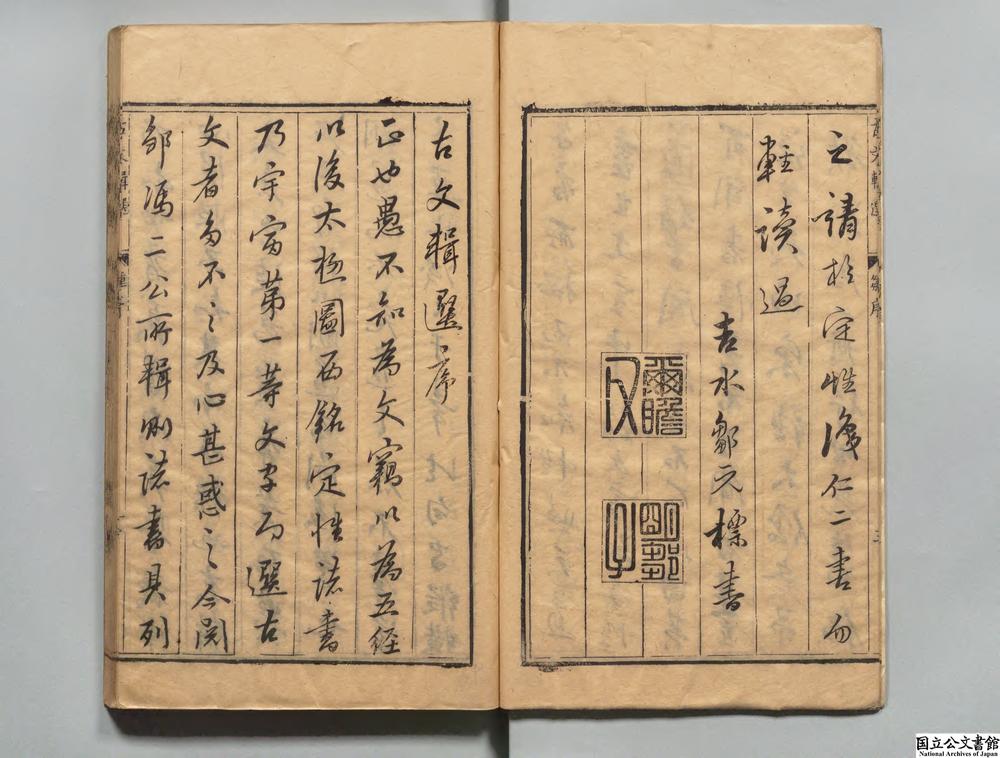 之請於定性識仁二書勿
輕讀過
吉水鄒元標書
爾瞻
父
古文輯選序
正也愚不知為文竊以為五經
以後太極圖西銘定性諸書
乃宇宙第一等文字而選古
文者多不之及心甚惑之今閱
鄒馮二公所輯則諸書具列
古文輯選
鄒序
三
国立公文書館
National Archives of Japan